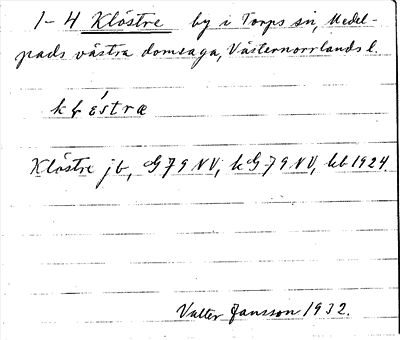 1-4 Klöstre by i Torps sn, Medel-
pads västra domsaga, Västernorrlands l.
Klöstre jb, G79NV, kG79NV, kb 1924.
Valter Jansson 1932.